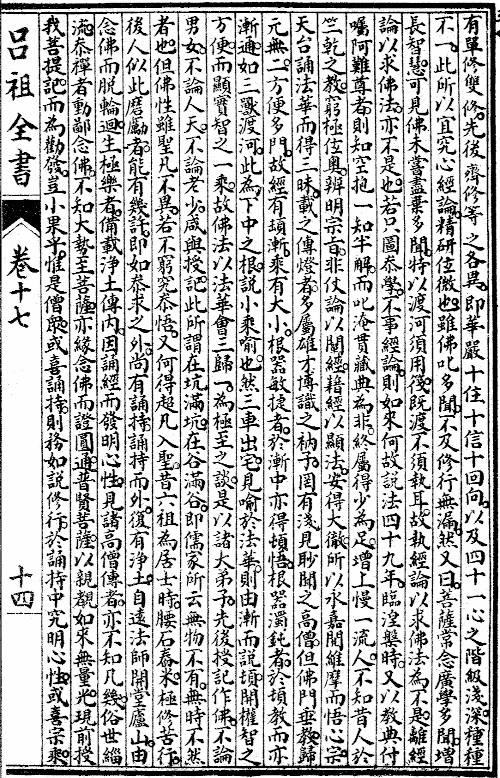 有單修雙修先後齊修等之各異即華嚴十住十信十回向以及四十一心之階級淺深種種
不一此所以宜究心經論精研位微也雖佛叱多聞不及修行無漏然又曰菩薩常念廣學多聞增
長智慧可見佛未嘗盡棄多聞特以渡河須用筏既渡不須執耳故執經論以求佛法為不是離經
論以求佛法亦不是也若只圖叅學不事經論則如來何故說法四十九年臨湼槃時又以教典付
囑阿難尊者則知空抱一知半解而叱淹貫藏典為非終屬得少為足增上慢一流人不知昔人於
竺乾之教窮極位奥辨明宗旨非仗論以闡經藉經以顯法安得大徹所以永嘉閱維摩而悟心宗
天台誦法華而得三昧載之傳燈者多屬雄才博識之衲子罔有淺見尠聞之高僧但佛門垂教歸
元無二方便多門故經有頓漸乘有大小根器敏捷者於漸中亦得頓悟根器濁鈍者於頓教而亦
漸通如三獸渡河此為下中之根說小乘喻也然三車出宅見喻於法華則由漸而說頓開權智之
方便而顯實智之一乘故佛法以法華會三歸一為極至之談是以諸大弟子先後授記作佛不論
男女不論人天不論老少咸與授記此所謂在坑滿坑在谷滿谷即儒家所云無物不有無時不然
者也但佛性雖聖凡不異若不窮究叅悟又何得超凡入聖昔六祖為居士時腰石舂米極修苦行
後人似此磨勵者能有幾許即如叅求之外尚有誦持誦持而外復有淨土自遠法師開堂廬山由
念佛而脫輪迴生極樂者備載淨土傳内因誦經而發明心性見諸高僧傳者亦不知凡幾俗世緇
流叅禪者動鄙念佛不知大勢至菩薩亦緣念佛而證圓通普賢菩薩以親覩如來無量光現前授
我菩提記而為勸發豈小果乎惟是僧衆或喜誦持則務如説修行於誦持中究明心性或喜宗乘
呂祖全書
卷十七
十四